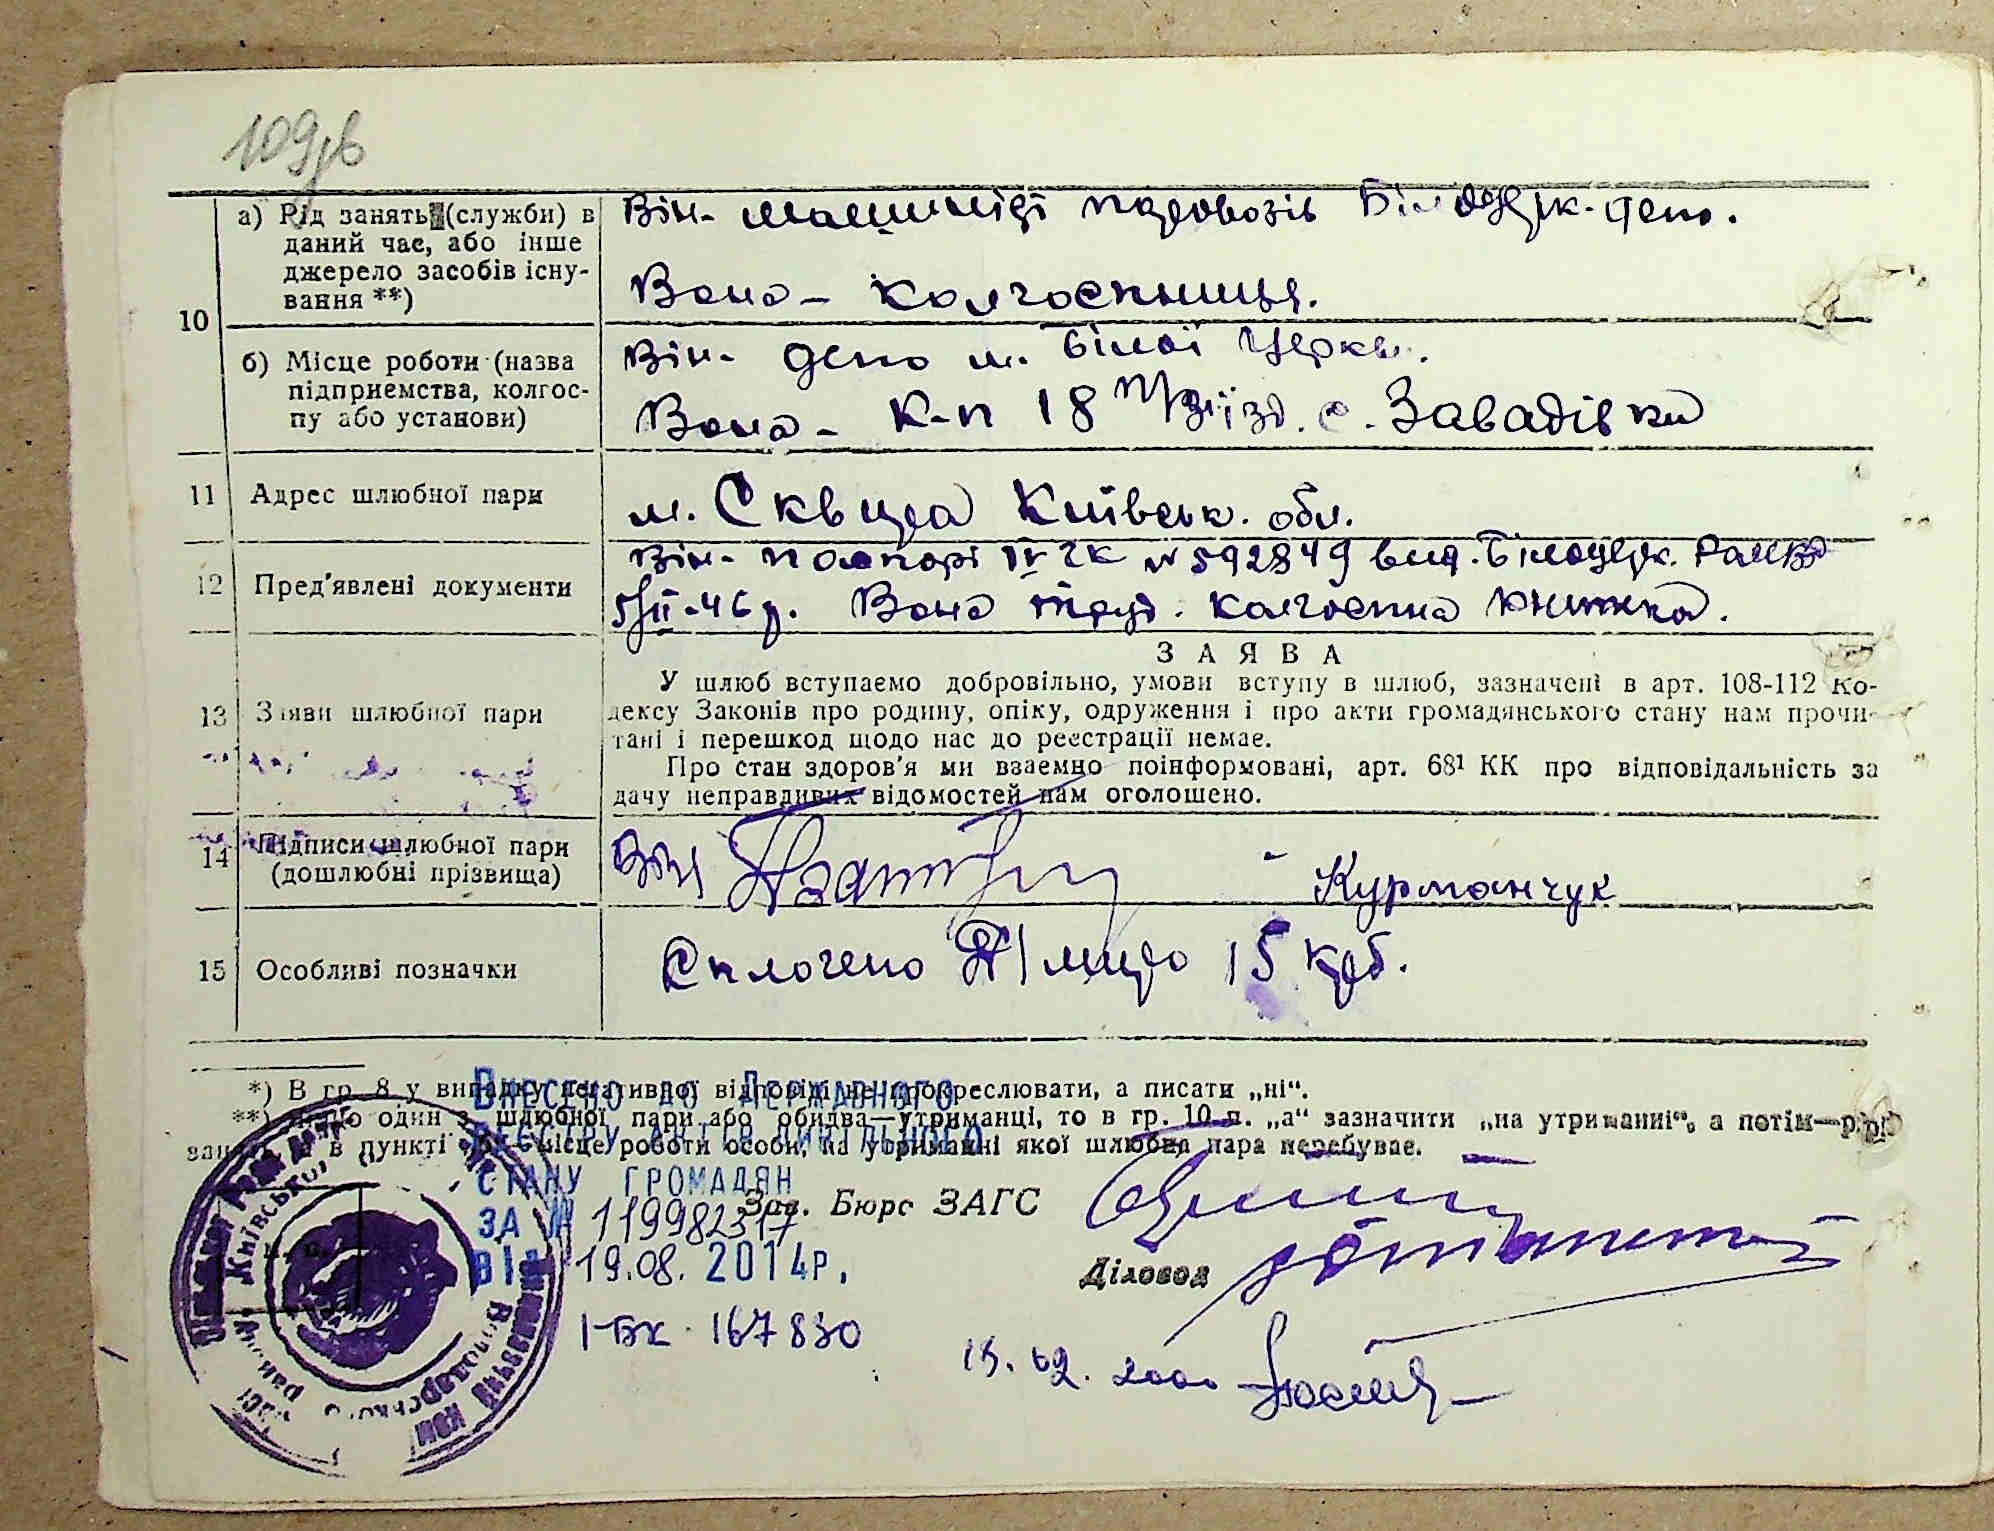 109зв
10
а) Рід занять (служби) в
даний час, або інше
джерело засобів існу-
вання **)
Він - машиніст паровозів Білоцерк. депо.
Вона - колгоспниця.
б) Місце роботи (назва
підприємства, колгос-
пу або установи)
Він - депо м. Білої Церкви.
Вона - К-п 18 п/зїзд. с. Завадівки
11 Адрес шлюбної пари
м. Сквира Київськ. обл.
12 Пред'явлені документи
Він - паспорт IV ГК № 592849 вид. Білоцерк.
5/II-46 р. Вона труд. колгоспна книжка.
13 Заяви шлюбної пари
ЗАЯВА
У шлюб вступаємо добровільно, умови вступу в шлюб, зазначені в арт. 108-112 Ко-
дексу Законів про родину, опіку, одруження і про акти громадянського стану нам прочи-
тані і перешкод щодо нас до реєстрації немає.
Про стан здоров'я ми взаємно поінформовані, арт. 68¹ КК про відповідальність за
дачу неправдивих відомостей нам оголошено.
14 Підписи шлюбної пари
(дошлюбні прізвища)
Він
Курманчук
15 Особливі позначки
Сплочено 15 крб.
*) В гр. 8 у випадку негативної відповіді не прокреслювати, а писати „ні“.
**) Якщо один з шлюбної пари або обидва—утриманці, то в гр. 10 п. „а“ зазначити „на утриманні“, а потім—рід
занять, а в пункті „б“ місце роботи особи, на утриманні якої шлюбна пара перебуває.
Внесено до Державного
реєстру актів цивільного
стану громадян
за № 119982317
від 19.08.2014р.
1-БК 167830
Зав. Бюро ЗАГС
Діловод